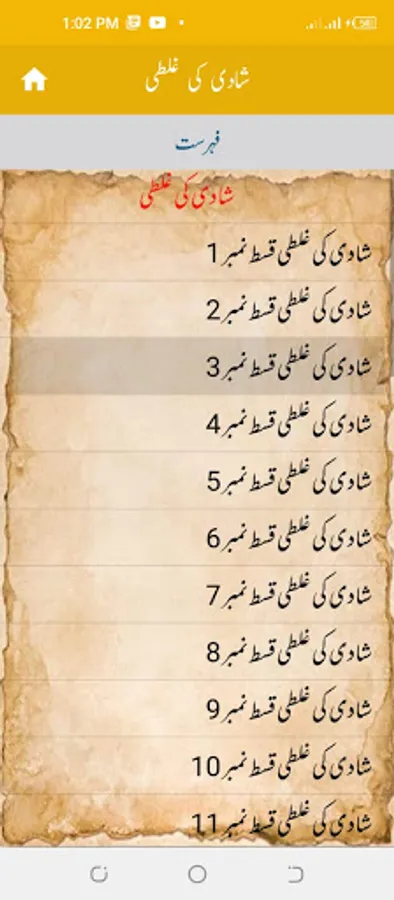 1:02 PM
شادی کی غلطی
فہرست
شادی کی غلطی
شادی کی غلطی قسط نمبر 1
شادی کی غلطی قسط نمبر 2
شادی کی غلطی قسط نمبر 3
شادی کی غلطی قسط نمبر 4
شادی کی غلطی قسط نمبر 5
شادی کی غلطی قسط نمبر 6
شادی کی غلطی قسط نمبر 7
شادی کی غلطی قسط نمبر 8
شادی کی غلطی قسط نمبر 9
شادی کی غلطی قسط نمبر 10
شادی کی غلطی قسط نمبر 11